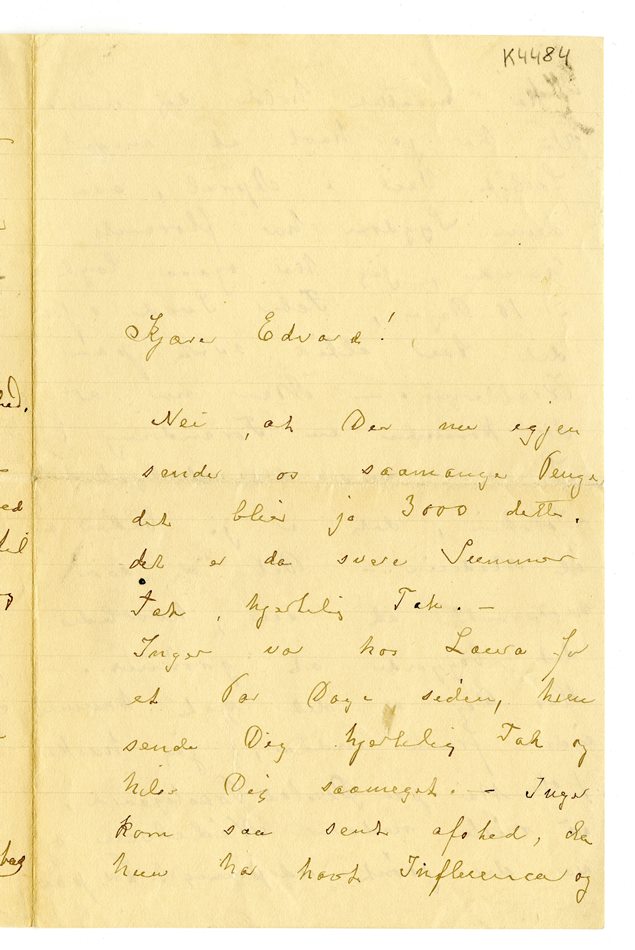 K4484
Kjære Edvard!
Nei, at Der nu igjen
sende os saamange Penge,
det blir jo 3000 dette.
det er da svere Summer
Tak, hjertelig Tak. —
Inger var hos Laura for
et Par Dage siden, hun
sende Dig hjertelig Tak og
hilse Dig saameget. — Inger
kom saa sent afsted, da
hun har havt Influenca og